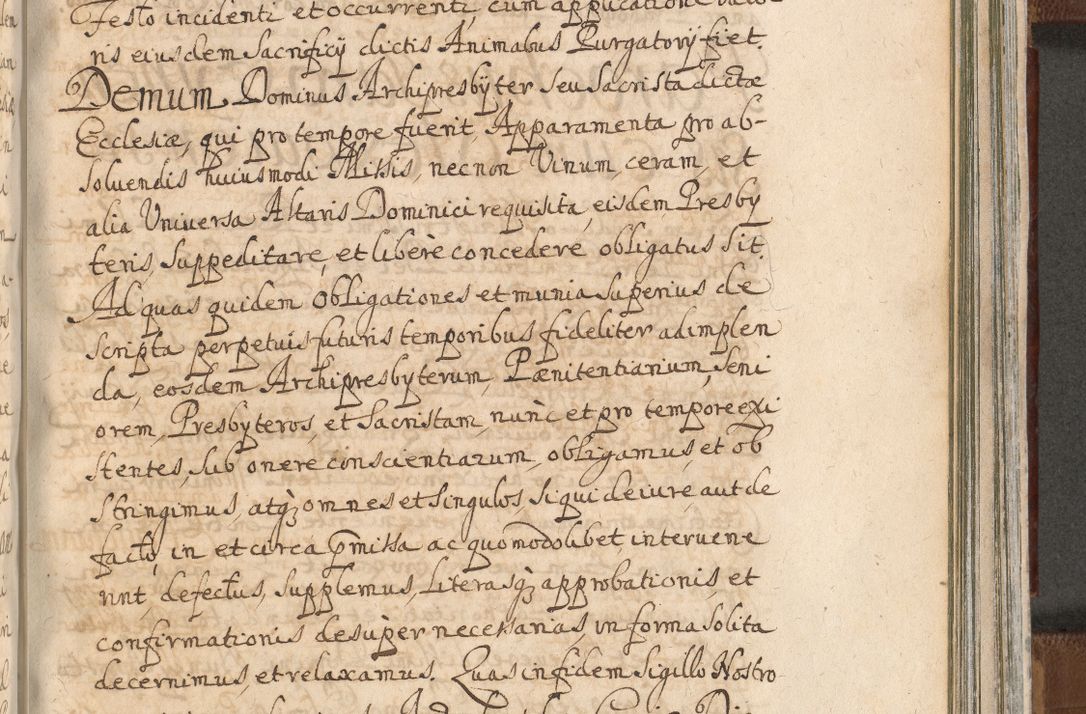 Festo incidenti et occurrenti, cum applicatione valo
ris eiusdem Sacrificij dictis Animabus Purgatorij fiet.
DEMUM Dominus Archipresbÿter seu Sacrista dictæ
Ecclesiæ, qui pro tempore fuerit, Apparamenta pro ab-
soluendis huiusmodi Missis, necnon Vinum, ceram, et
alia Universa Altaris Dominici requisita, eisdem Presby
teris, suppeditare, et liberè concedere obligatus sit.
Ad quas quidem obligationes et munia superius de
scripta perpetuis futuris temporibus fideliter adimplen
da, eosdem Archipresbyterum, Pænitentiarium, Seni
orem, Presbyteros, et Sacristam, nunc et pro tempore exi
stentes, sub onere conscientiarum, obligamus, et ob
stringimus, atqȝ omnes et singulos, si qui de iure aut de
facto, in et circa p̄missa ac quomodolibet intervene
rint, defectus, supplemus, Literasqȝ approbationis, et
confirmationis desuper necessarias, in forma solita
decernimus, et relaxamus. Quas in fidem sigillo Nostro